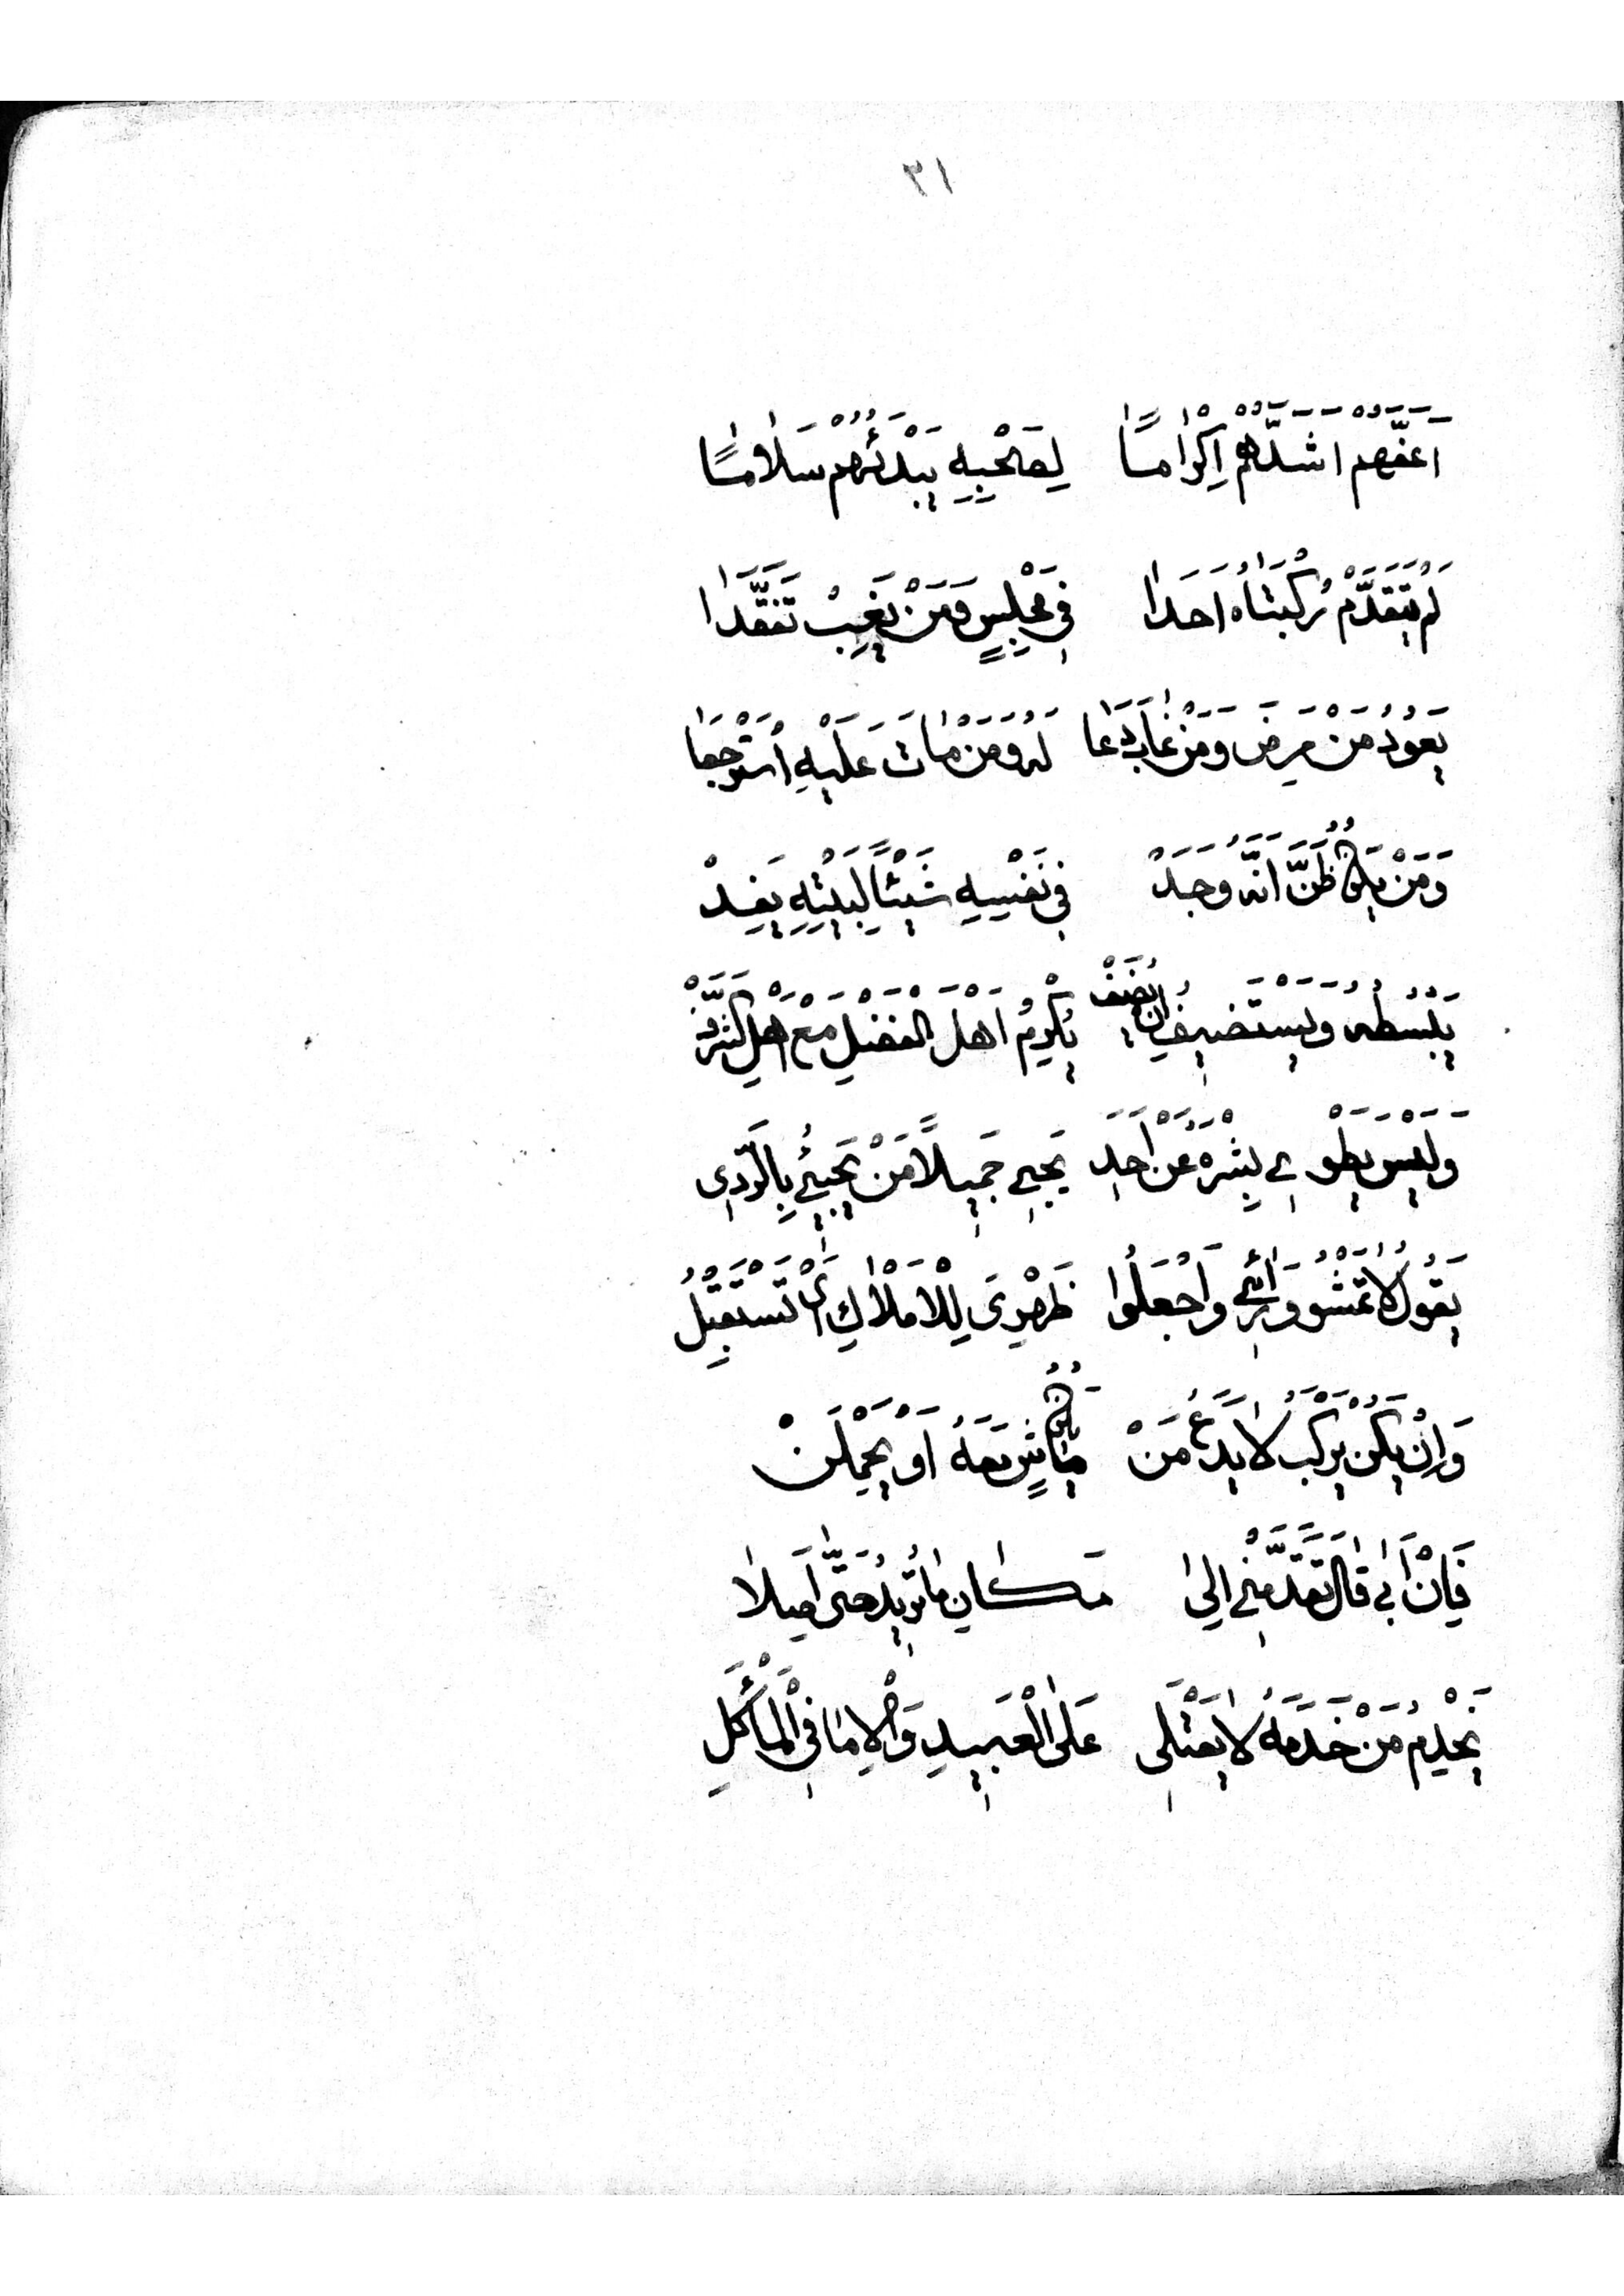 ٣١
أَعَفَّهُمْ أَشَدَّهُمْ إِكْرَامًا لِصَحْبِهِ يَبْدَئُهُمْ سَلَامًا
لَمْ يَتَقَدَّمْ رُكْبَتَاهُ أَحَدَا فِي مَجْلِسٍ وَمَنْ يَغِبْ تَفَقَّدَا
يَعُودُ مَنْ مَرِضَ وَمَنْ غَابَ دَعَا لَهُ وَمَنْ مَاتَ عَلَيْهِ اسْتَرْجَعَا
وَمَنْ يَكُنْ ظَنَّ أَنَّهُ وَجَدْ فِي نَفْسِهِ شَيْئًا لِبَيْتِهِ يَفِدْ
يَبْسُطُهُ وَيَسْتَضِيفُ إِنْ يُضَفْ يُكْرِمُ أَهْلَ الْفَضْلِ مَعْ أَهْلِ الشَّرَفْ
وَلَيْسَ يَطْوِي بِشْرَهُ عَنْ أَحَدِ يَجِي جَمِيلًا مَنْ يَجِيئُ بِالرَّدِي
يَقُولُ لَا تَمْشُو وَرَائِي وَاجْعَلُوا ظَهْرِيَ لِلْأَمْلَاكِ أَيْ تَسْتَقْبِلُ
وَإِنْ يَكُنْ يَرْكَبُ لَا يَدَعُ مَنْ يَكُنْ مَاشٍ مَعَهُ أَوْ يَحْمِلَنْ
فَإِنْ أَبَى قَالَ تَقَدَّمَنِّي إِلَى مَكَانِ مَا تُرِيدُ حَتَّى أَصِلَا
يَخْدِمُ مَنْ خَدَمَهُ لَا يَعْتَلِي عَلَى الْعَبِيدِ وَالْإِمَا فِي الْمَأْكَلِ